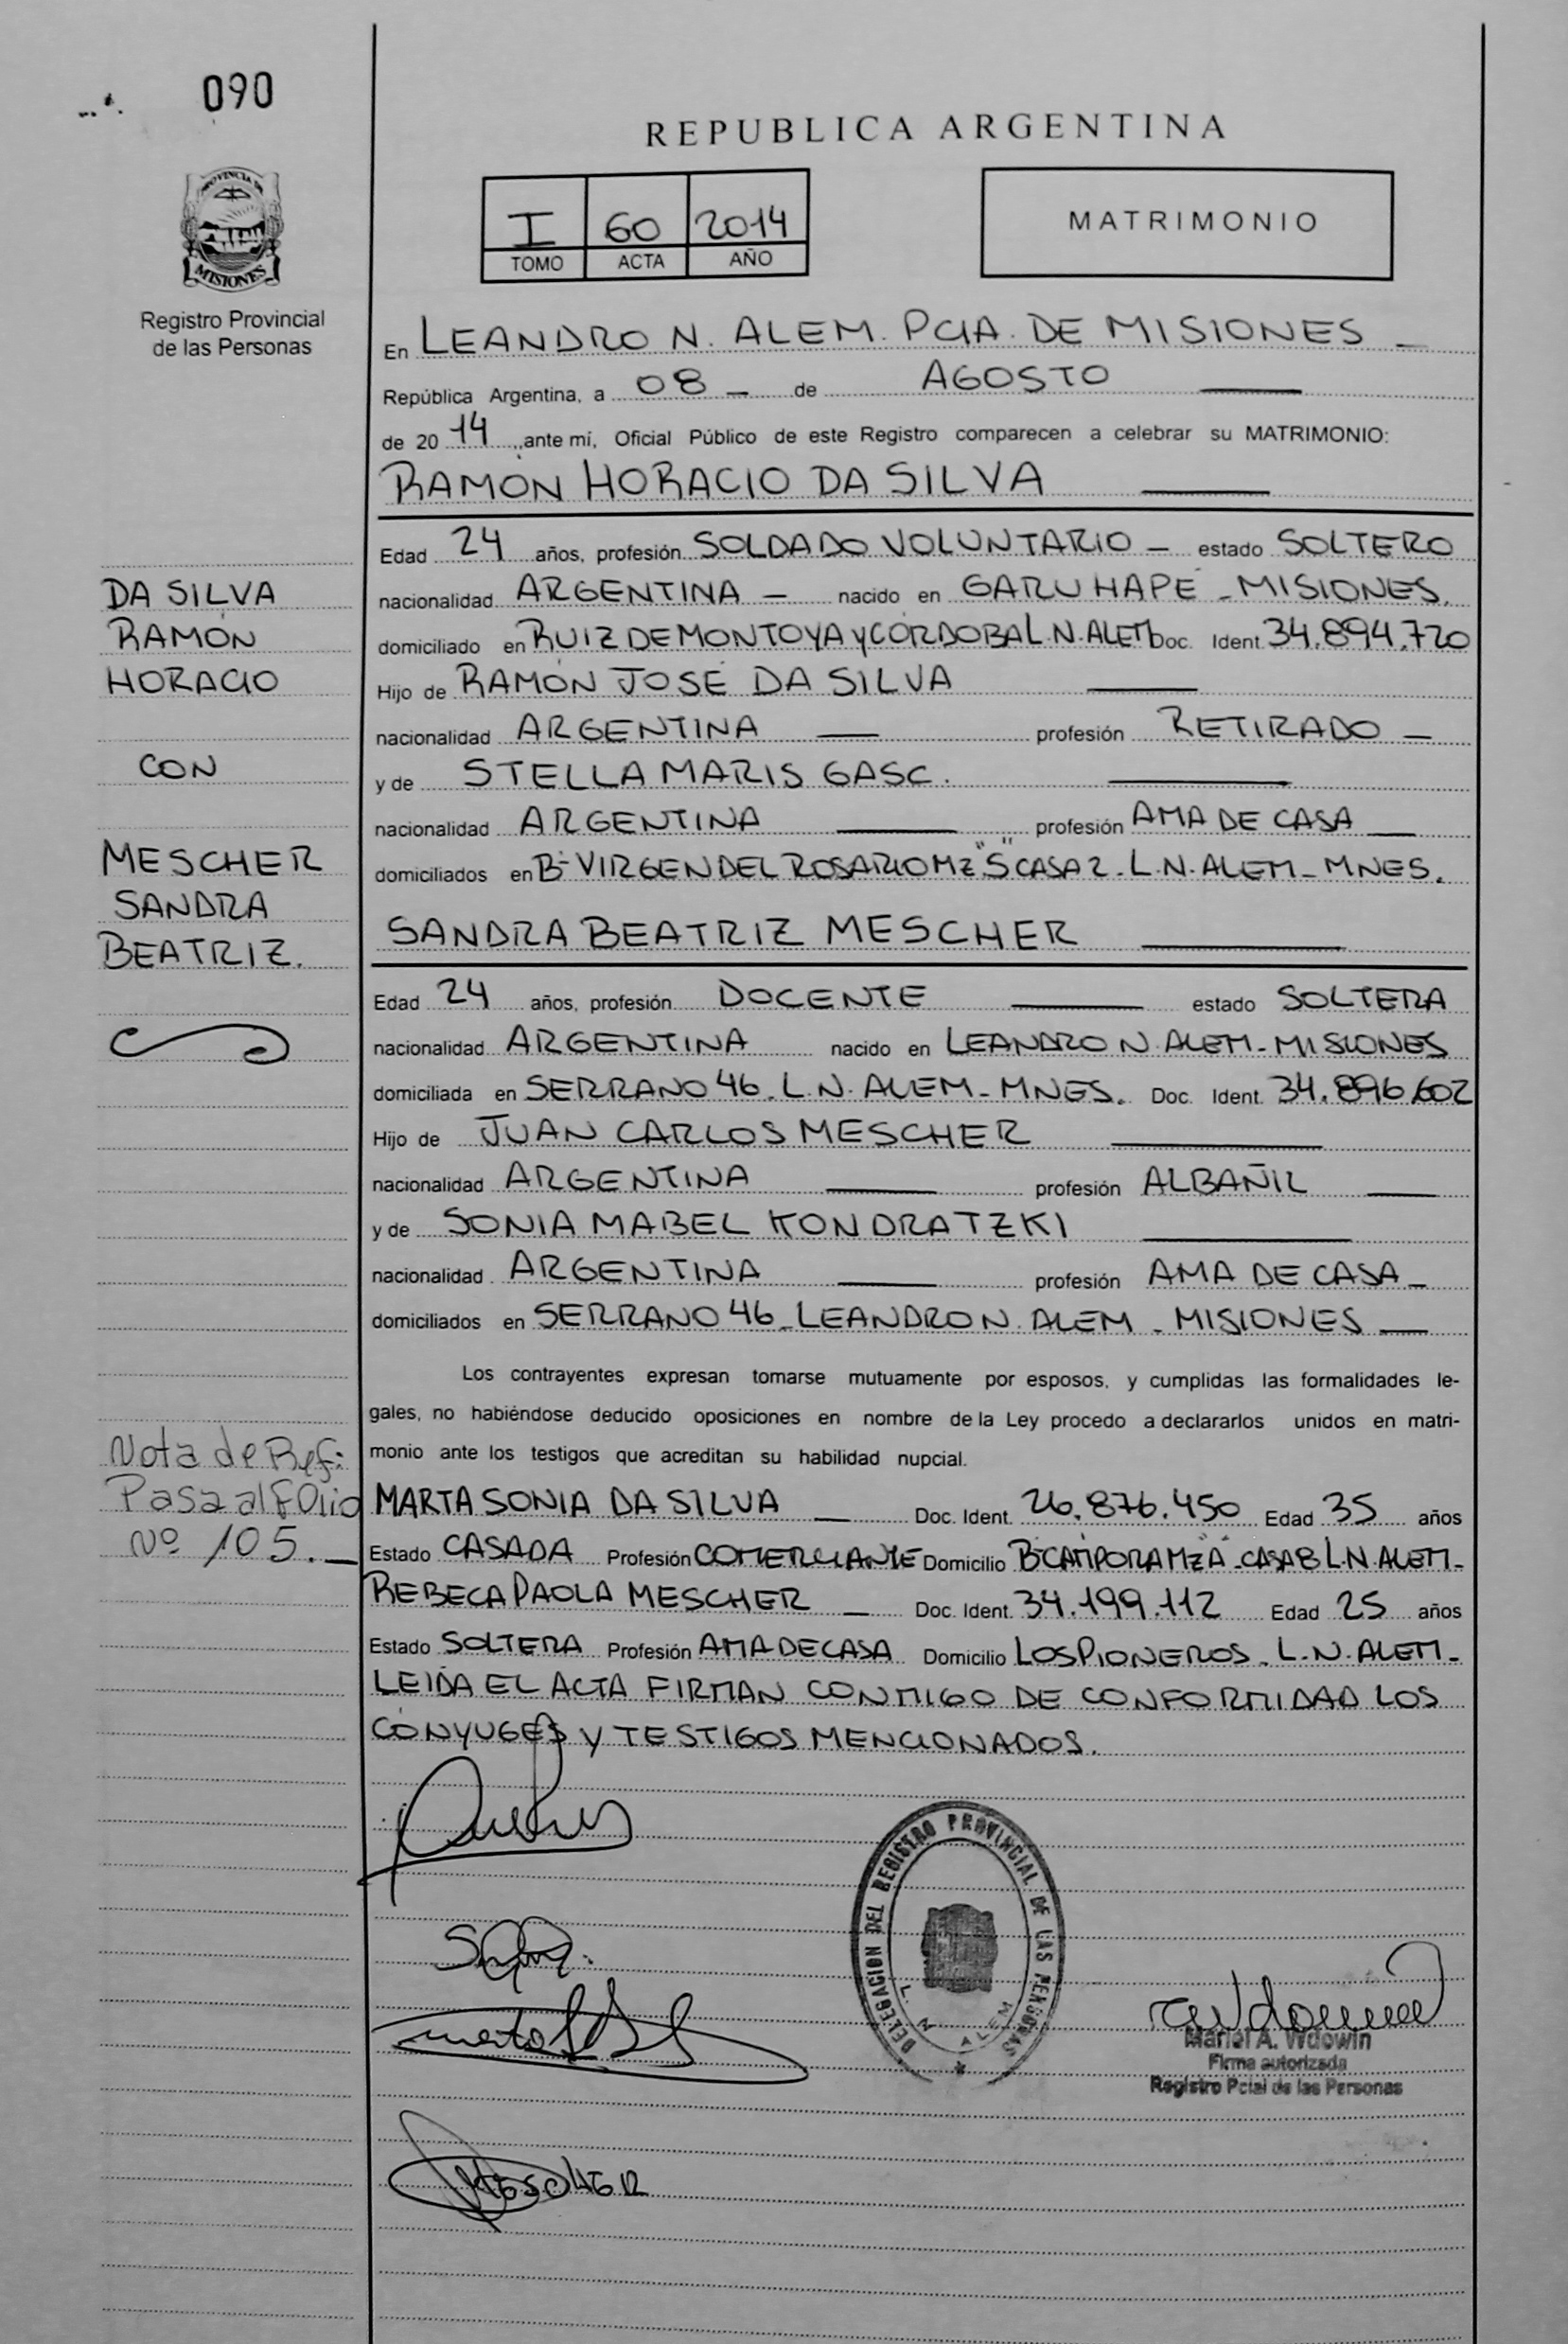 090
REPUBLICA ARGENTINA
PROVINCIA DE
MISIONES
Registro Provincial
de las Personas
I 60 2014
TOMO ACTA AÑO
MATRIMONIO
En LEANDRO N. ALEM. PCIA. DE MISIONES
República Argentina, a 08 de AGOSTO
de 20 14, ante mí, Oficial Público de este Registro comparecen a celebrar su MATRIMONIO:
RAMÓN HORACIO DA SILVA
Edad 24 años, profesión SOLDADO VOLUNTARIO estado SOLTERO
nacionalidad ARGENTINA nacido en GARUHAPÉ - MISIONES.
domiciliado en RUIZ DE MONTOYA Y CÓRDOBA L.N. ALEM Doc. Ident. 34.894.720
Hijo de RAMÓN JOSÉ DA SILVA
nacionalidad ARGENTINA profesión RETIRADO
y de STELLA MARIS GASC.
nacionalidad ARGENTINA profesión AMA DE CASA
domiciliados en Bº VIRGEN DEL ROSARIO MZ "S" CASA 2 - L.N. ALEM - MNES.
SANDRA BEATRIZ MESCHER
Edad 24 años, profesión DOCENTE estado SOLTERA
nacionalidad ARGENTINA nacido en LEANDRO N. ALEM - MISIONES
domiciliada en SERRANO 46 - L.N. ALEM - MNES. Doc. Ident. 34.896.602
Hijo de JUAN CARLOS MESCHER
nacionalidad ARGENTINA profesión ALBAÑIL
y de SONIA MABEL KONDRATZKI
nacionalidad ARGENTINA profesión AMA DE CASA
domiciliados en SERRANO 46 - LEANDRO N. ALEM - MISIONES
Los contrayentes expresan tomarse mutuamente por esposos, y cumplidas las formalidades le-
gales, no habiéndose deducido oposiciones en nombre de la Ley procedo a declararlos unidos en matri-
monio ante los testigos que acreditan su habilidad nupcial.
MARTA SONIA DA SILVA Doc. Ident. 26.876.450 Edad 35 años
Estado CASADA Profesión COMERCIANTE Domicilio Bº CAMPORA MZ "A" - CASA 8 L.N. ALEM -
REBECA PAOLA MESCHER Doc. Ident. 34.199.112 Edad 25 años
Estado SOLTERA Profesión AMA DE CASA Domicilio LOS PIONEROS - L.N. ALEM -
LEIDA EL ACTA FIRMAN CONMIGO DE CONFORMIDAD LOS
CÓNYUGES Y TESTIGOS MENCIONADOS.
DA SILVA
RAMÓN
HORACIO
CON
MESCHER
SANDRA
BEATRIZ.
Nota de Ref:
Pasa al Folio
Nº 105.
DELEGACION DEL REGISTRO PROVINCIAL DE LAS PERSONAS
L. N. ALEM
Mariel A. Wdowin
Firma autorizada
Registro Pcial de las Personas
MESCHER